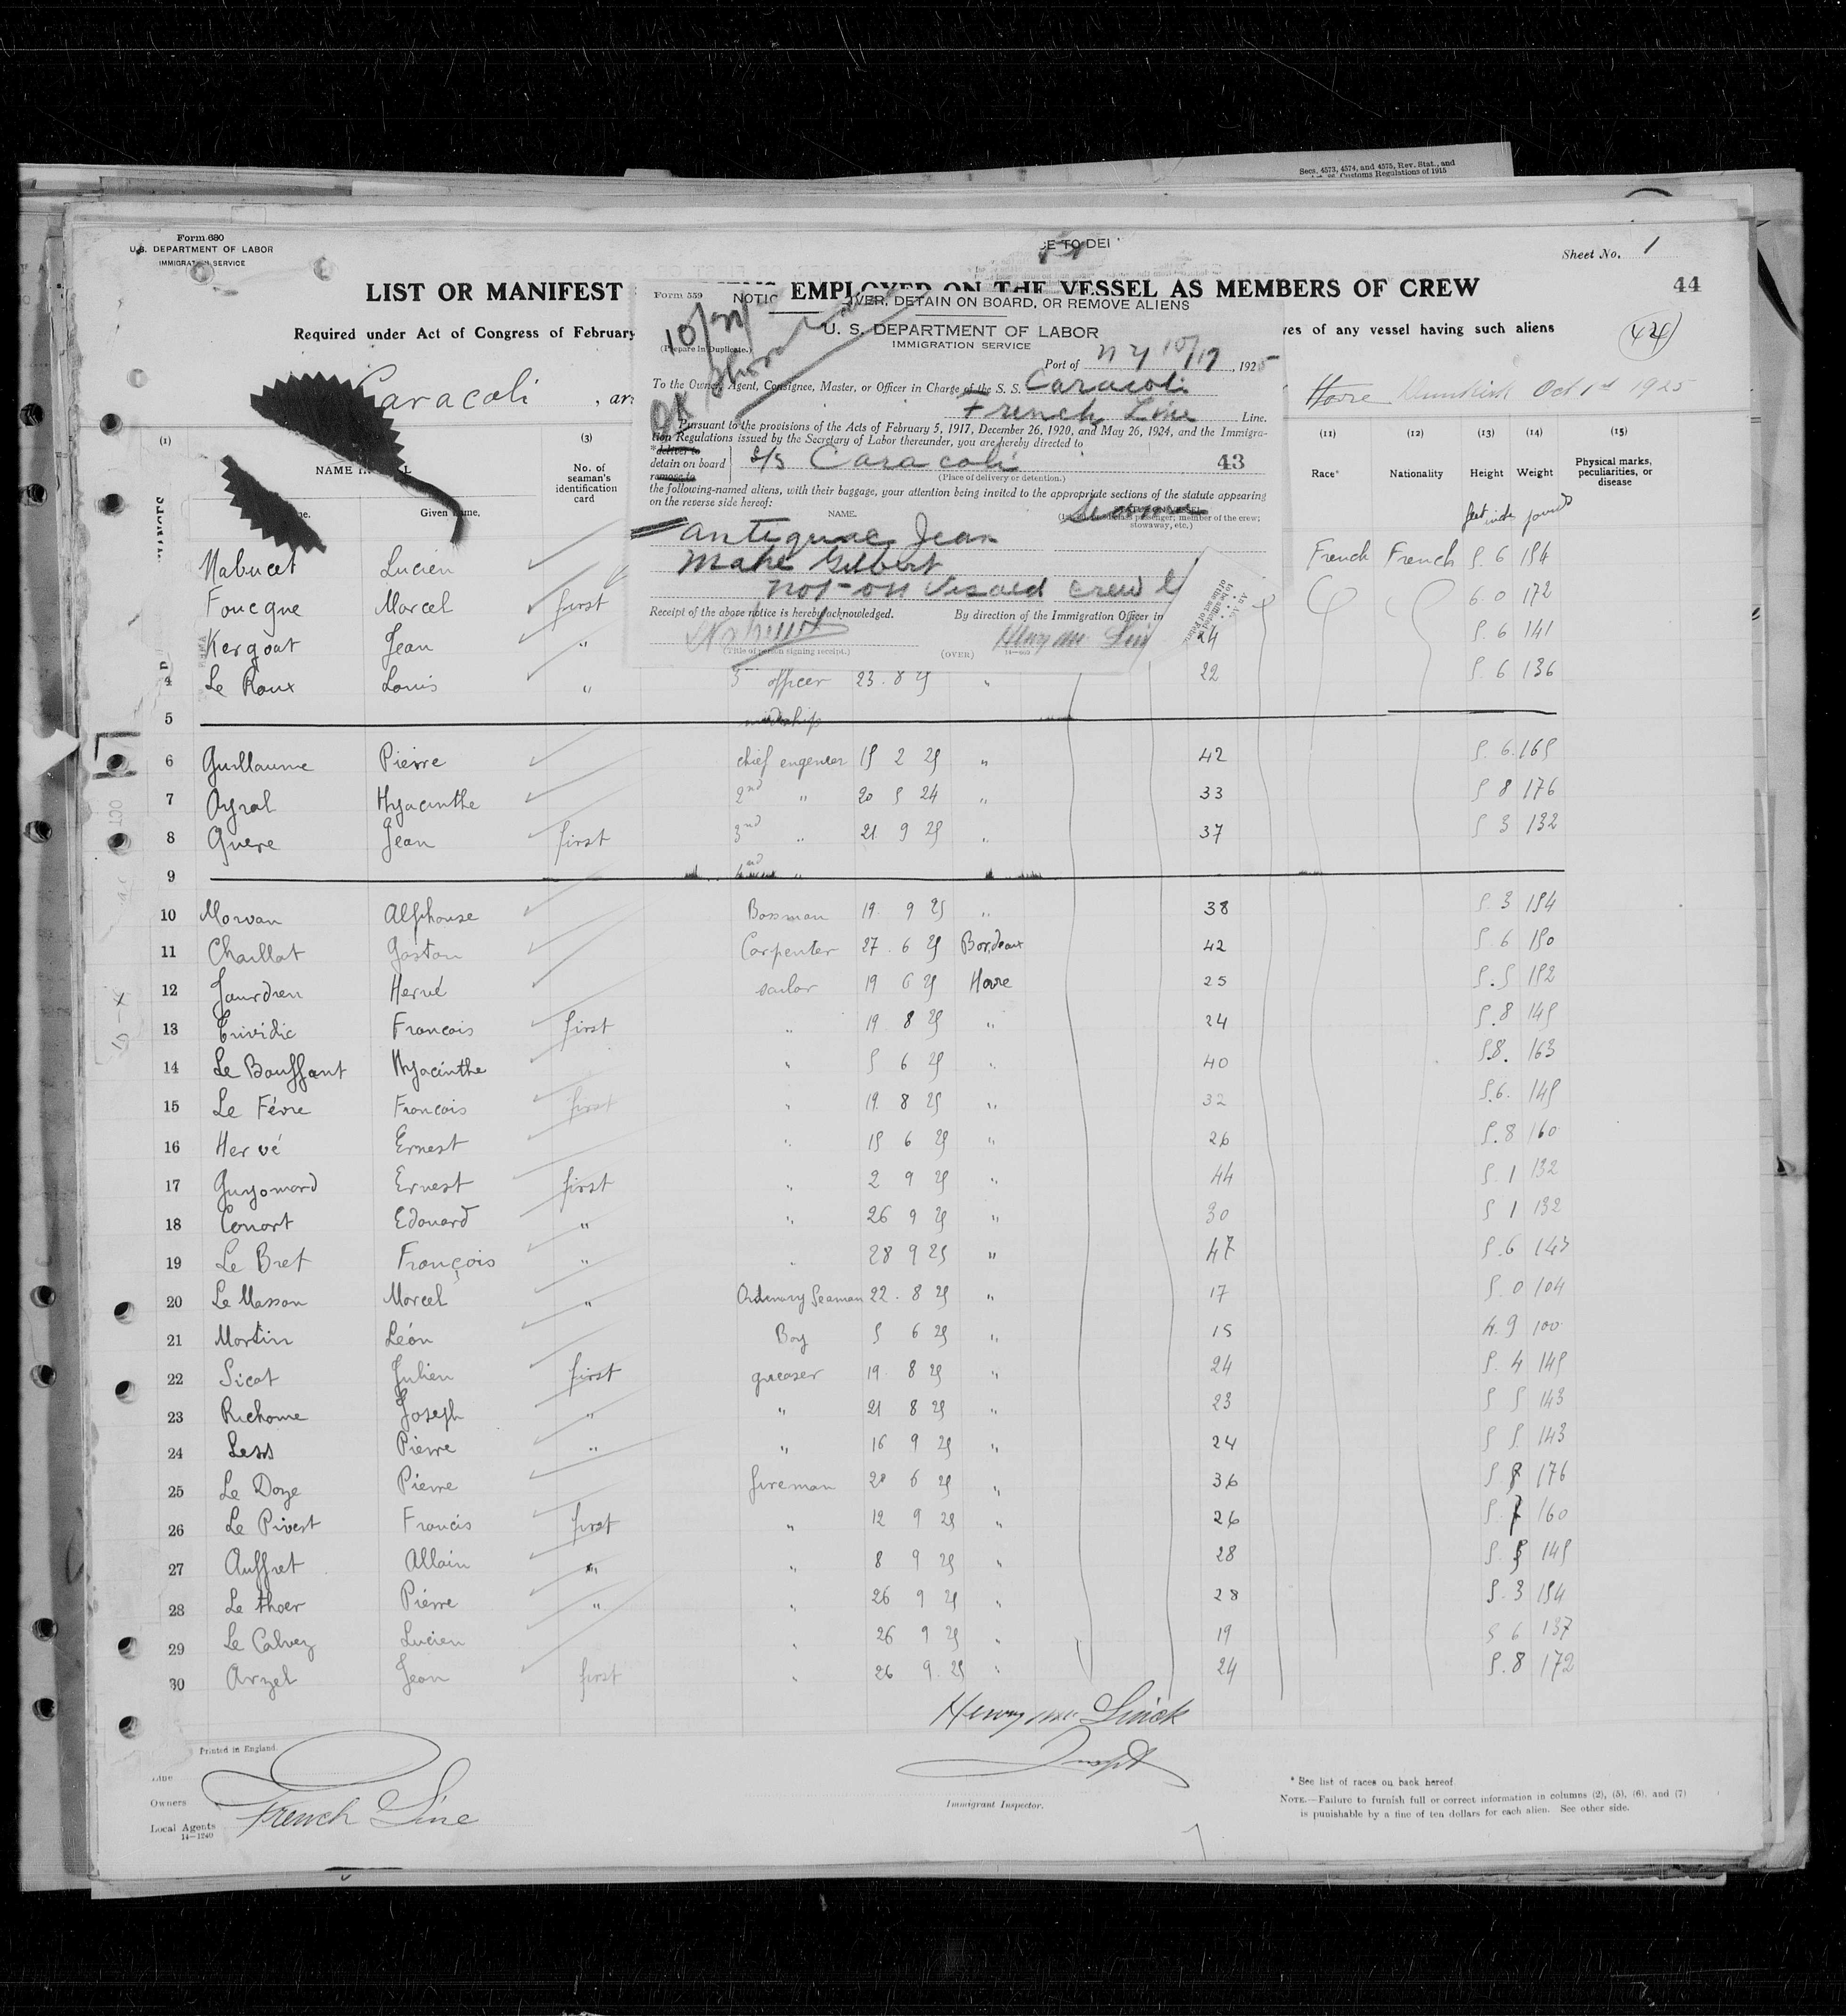 Secs. 4573, 4574, and 4575, Rev. Stat., and
Customs Regulations of 1915
Form 680
U.S. DEPARTMENT OF LABOR
IMMIGRATION SERVICE
Sheet No. 1
LIST OR MANIFEST
EMPLOYED ON THE VESSEL AS MEMBERS OF CREW
44
Required under Act of Congress of February
of any vessel having such aliens
44
Caracoli
Havre Dunkirk Oct 1st 1925
Form 559
NOTIC
DETAIN ON BOARD, OR REMOVE ALIENS
U. S. DEPARTMENT OF LABOR
IMMIGRATION SERVICE
(Prepare In Duplicate.)
Port of NY 10/17, 1925
To the Owner, Agent, Consignee, Master, or Officer in Charge of the S. S. Caracoli
French Line Line.
Pursuant to the provisions of the Acts of February 5, 1917, December 26, 1920, and May 26, 1924, and the Immigra-
tion Regulations issued by the Secretary of Labor thereunder, you are hereby directed to
*deliver to
detain on board
remove to
S/S Caracoli 43
(Place of delivery or detention.)
the following-named aliens, with their baggage, your attention being invited to the appropriate sections of the statute appearing
on the reverse side hereof:
NAME.
passenger; member of the crew;
stowaway, etc.)
Antignac Jean
Mahe Gilbert
not on visaed crew
Receipt of the above notice is hereby acknowledged. By direction of the Immigration Officer in
(Title of person signing receipt.) (OVER)
(1) (3) (11) (12) (13) (14) (15)
No. of seaman's identification card
Given name.
Race* Nationality Height Weight Physical marks, peculiarities, or disease
Nabucet Lucien French French 5. 6 154
Foucque Marcel first 6. 0 172
Kergoat Jean " 24 5. 6 141
4 Le Roux Louis " 3 officer 23. 8 25 " 22 5. 6 136
5
6 Guillaume Pierre chief engineer 15 2 25 " 42 5. 6. 165
7 Ayral Hyacinthe 2nd " 20 5 24 " 33 5 8 176
8 Quere Jean first 3nd " 21 9 25 " 37 5 3 132
9
10 Morvan Alphonse Bosman 19. 9 25 " 38 5. 3 154
11 Chaillat Gaston Carpenter 27. 6 25 Bordeaux 42 5 6 150
12 Jourdren Hervé sailor 19 6 25 Havre 25 5. 5 152
13 Trividic Francois first " 19 8 25 " 24 5. 8 145
14 Le Bouffant Hyacinthe " 5 6 25 " 40 5.8. 163
15 Le Févre Francois first " 19. 8 25 " 32 5.6. 145
16 Hervé Ernest " 15 6 25 " 26 5. 8 160
17 Guyomard Ernest first " 2 9 25 " 44 5. 1 132
18 Conort Edouard " " 26 9 25 " 30 5 1 132
19 Le Bret François " " 28 9 25 " 47 5. 6 143
20 Le Masson Marcel " Ordinary Seaman 22. 8 25 " 17 5. 0 104
21 Martin Léon Boy 5 6 25 " 15 4. 9 100
22 Sicat Julien first greaser 19. 8 25 " 24 5. 4 145
23 Richome Joseph " " 21 8 25 " 23 5 5 143
24 Less Pierre " " 16 9 25 " 24 5 5. 143
25 Le Doze Pierre fireman 20 6 25 " 36 5 176
26 Le Pivert Francis first " 12 9 25 " 26 5. 7 160
27 Auffret Allain " " 8 9 25 " 28 5. 145
28 Le thoer Pierre " " 26 9 25 " 28 5. 3 154
29 Le Calvez Lucien " 26 9 25 " 19 5 6 137
30 Arzel Jean first " 26 9. 25 " 24 5. 8 172
Henry Mc. Linick
Inspt
Printed in England.
Line
Owners
Local Agents
14—1240
French Line
Immigrant Inspector.
* See list of races on back hereof
NOTE.—Failure to furnish full or correct information in columns (2), (5), (6), and (7)
is punishable by a fine of ten dollars for each alien. See other side.